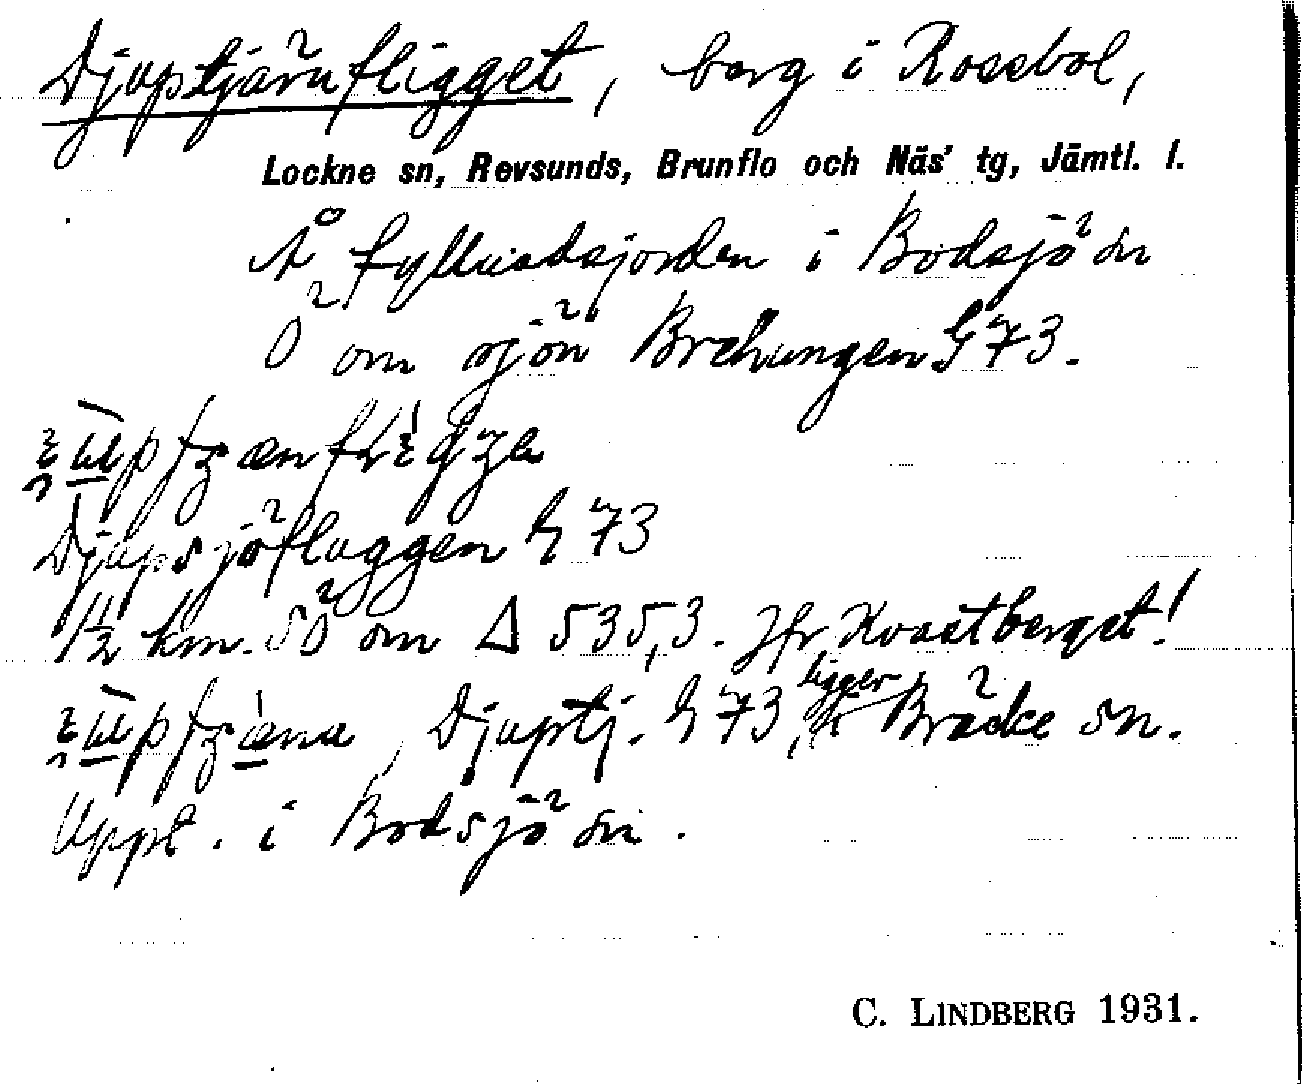 Djuptjärnfligget, berg i Rossbol,
Lockne sn, Revsunds, Brunflo och Näs' tg, Jämtl. l.
Å i Bodsjö sn
Ö om sjön G 73.
Djupsjöfluggen G 73
1½ km. SÖ om Δ 535,3. Jfr Kvastberget!
Djuptj. G 73, ligger Bräcke sn.
Uppt. i Bodsjö sn.
C. LINDBERG 1931.